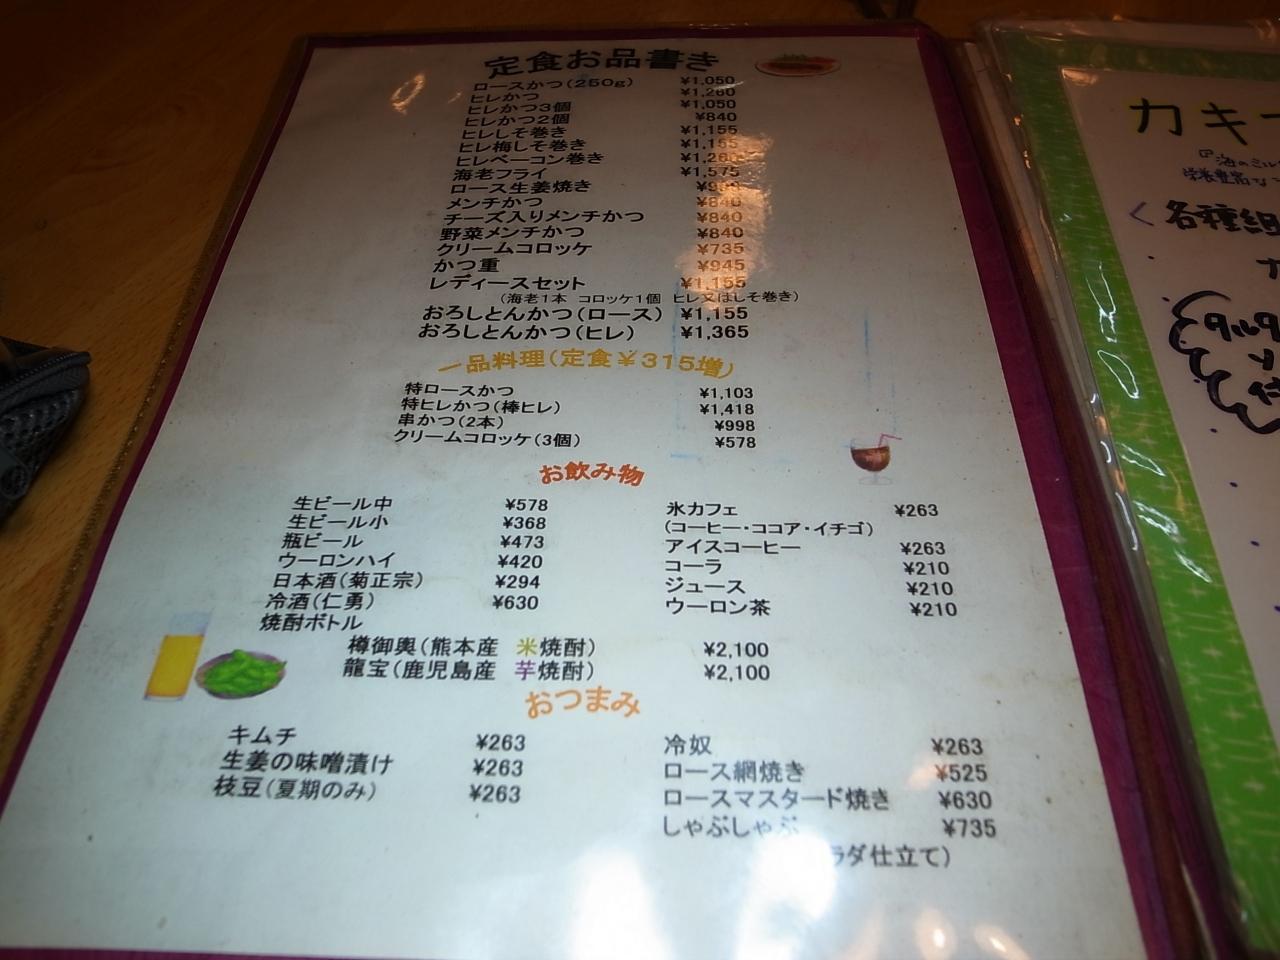 定食お品書き
ロースかつ(250g) ¥1,050
ヒレかつ ¥1,260
ヒレかつ3個 ¥1,050
ヒレかつ2個 ¥840
ヒレしそ巻き ¥1,155
ヒレ梅しそ巻き ¥1,155
ヒレベーコン巻き ¥1,260
海老フライ ¥1,575
ロース生姜焼き
メンチかつ ¥840
チーズ入りメンチかつ ¥840
野菜メンチかつ ¥840
クリームコロッケ ¥735
かつ重 ¥945
レディースセット ¥1,155
(海老1本 コロッケ1個 ヒレ又はしそ巻き)
おろしとんかつ(ロース) ¥1,155
おろしとんかつ(ヒレ) ¥1,365
一品料理(定食¥315増)
特ロースかつ ¥1,103
特ヒレかつ(棒ヒレ) ¥1,418
串かつ(2本) ¥998
クリームコロッケ(3個) ¥578
お飲み物
生ビール中 ¥578
生ビール小 ¥368
瓶ビール ¥473
ウーロンハイ ¥420
日本酒(菊正宗) ¥294
冷酒(仁勇) ¥630
焼酎ボトル
樽御輿(熊本産 米焼酎) ¥2,100
龍宝(鹿児島産 芋焼酎) ¥2,100
氷カフェ ¥263
(コーヒー・ココア・イチゴ)
アイスコーヒー ¥263
コーラ ¥210
ジュース ¥210
ウーロン茶 ¥210
おつまみ
キムチ ¥263
生姜の味噌漬け ¥263
枝豆(夏期のみ) ¥263
冷奴 ¥263
ロース網焼き ¥525
ロースマスタード焼き ¥630
しゃぶしゃぶ ¥735
ラダ仕立て)
カキ
『海のミル
栄養豊富な
く各種組
タルタ